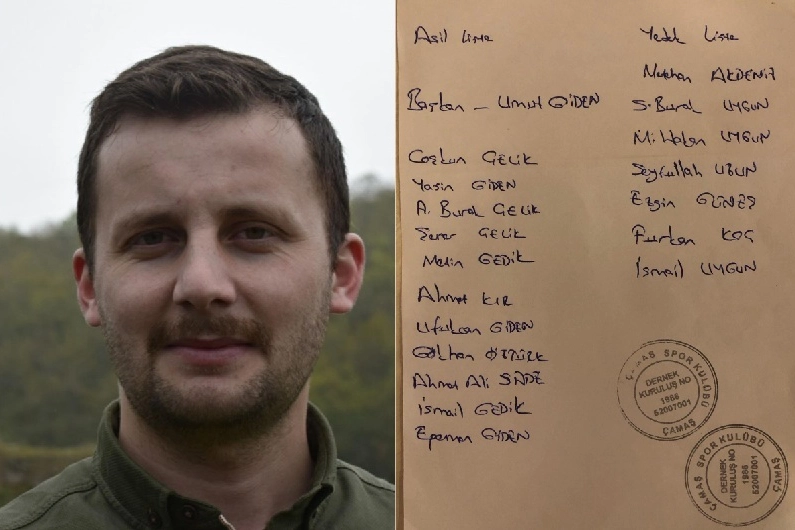 Asil Liste
Başkan - Umut GİDEN
Coşkun ÇELİK
Yasin GİDEN
A. Burak ÇELİK
Şener ÇELİK
Metin GEDİK
Ahmet KIR
Ufukcan GİDEN
Gökhan ÖZTÜRK
Ahmet Ali
İsmail GEDİK
GİDEN
Yedek Liste
AKDENİZ
S. Burak UYGUN
UYGUN
Seyfullah UZUN
Ezgin GÜNEŞ
Furkan KOÇ
İsmail UYGUN
ÇAMAŞ SPOR KULÜBÜ
DERNEK
KURULUŞ NO
1986
52007001
ÇAMAŞ
ÇAMAŞ SPOR KULÜBÜ
DERNEK
KURULUŞ NO
1986
52007001
ÇAMAŞ